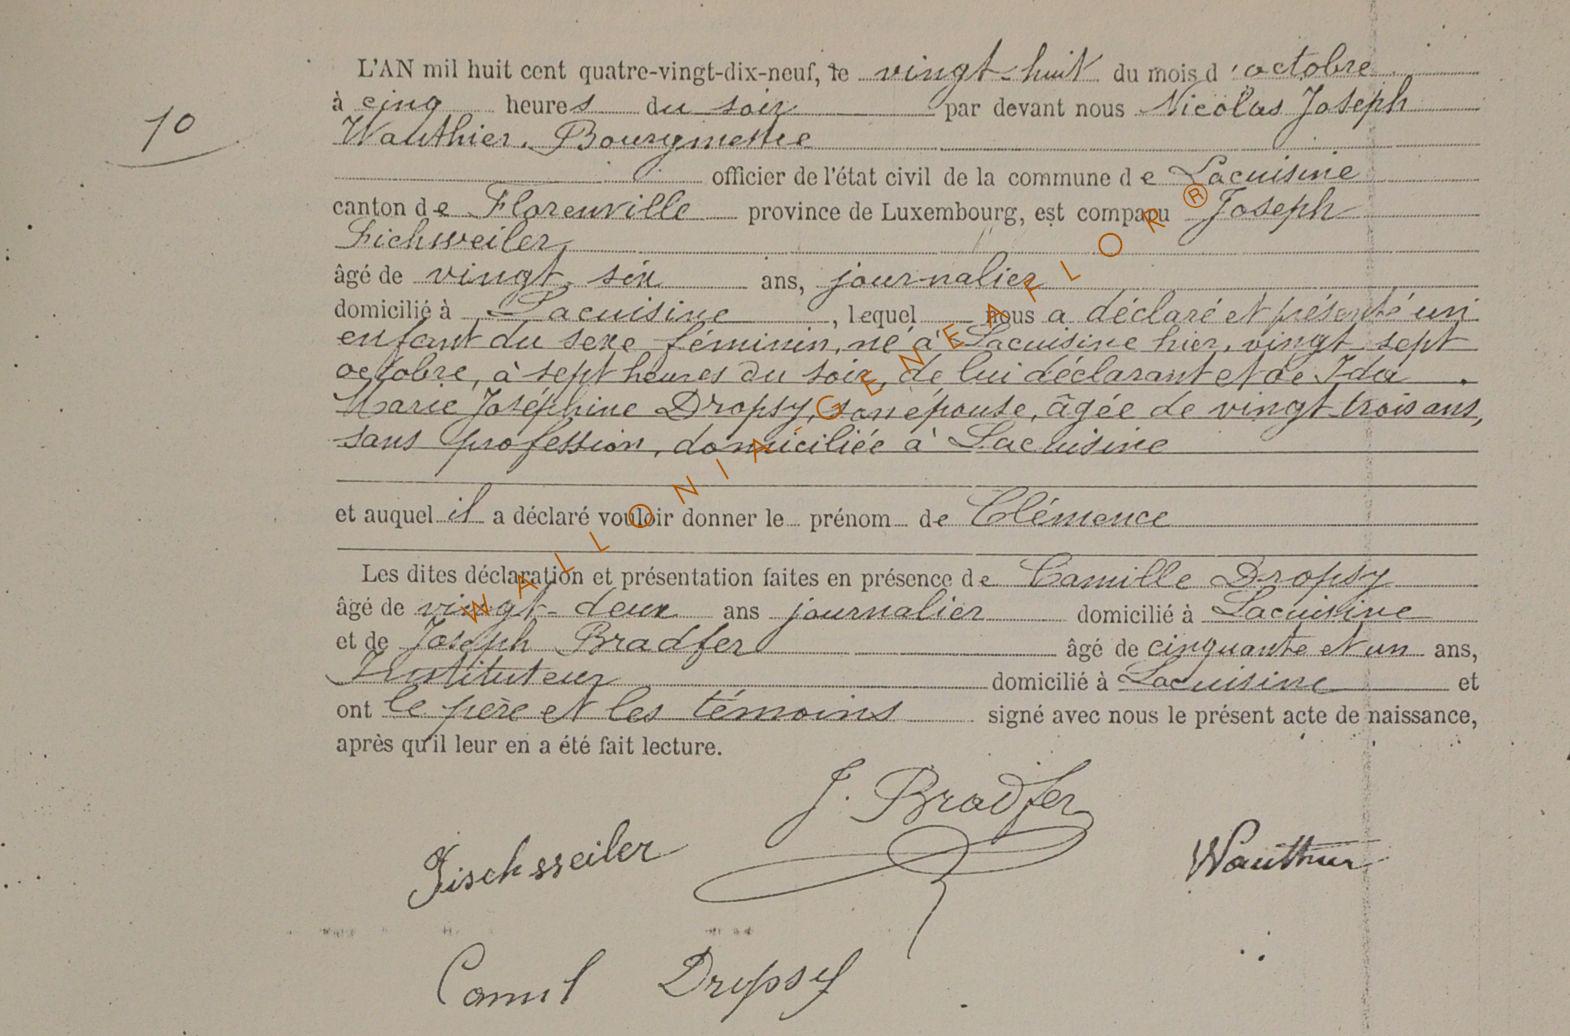 L'AN mil huit cent quatre-vingt-dix-neuf, le vingt-huit du mois d'octobre
à cinq heures du soir par devant nous Nicolas Joseph
10
Wauthier, Bourgmestre
officier de l'état civil de la commune de Lacuisine
canton de Florenville province de Luxembourg, est comparu Joseph
Fichweiler,
âgé de vingt-six ans, journalier
domicilié à Lacuisine, lequel nous a déclaré et présenté un
enfant du sexe féminin, né à Lacuisine hier, vingt sept
octobre, à sept heures du soir, de lui déclarant et de Ida
Marie Joséphine Dropsy, son épouse, âgée de vingt trois ans,
sans profession, domiciliée à Lacuisine
et auquel il a déclaré vouloir donner le prénom de Clémence
Les dites déclaration et présentation faites en présence de Camille Dropsy
âgé de vingt-deux ans journalier domicilié à Lacuisine
et de Joseph Bradfer âgé de cinquante et un ans,
Instituteur domicilié à Lacuisine et
ont le père et les témoins signé avec nous le présent acte de naissance,
après qu'il leur en a été fait lecture.
J. Bradfer
Wauthier
Camil Dropsy
WALLONIA GENEAFLOR ®